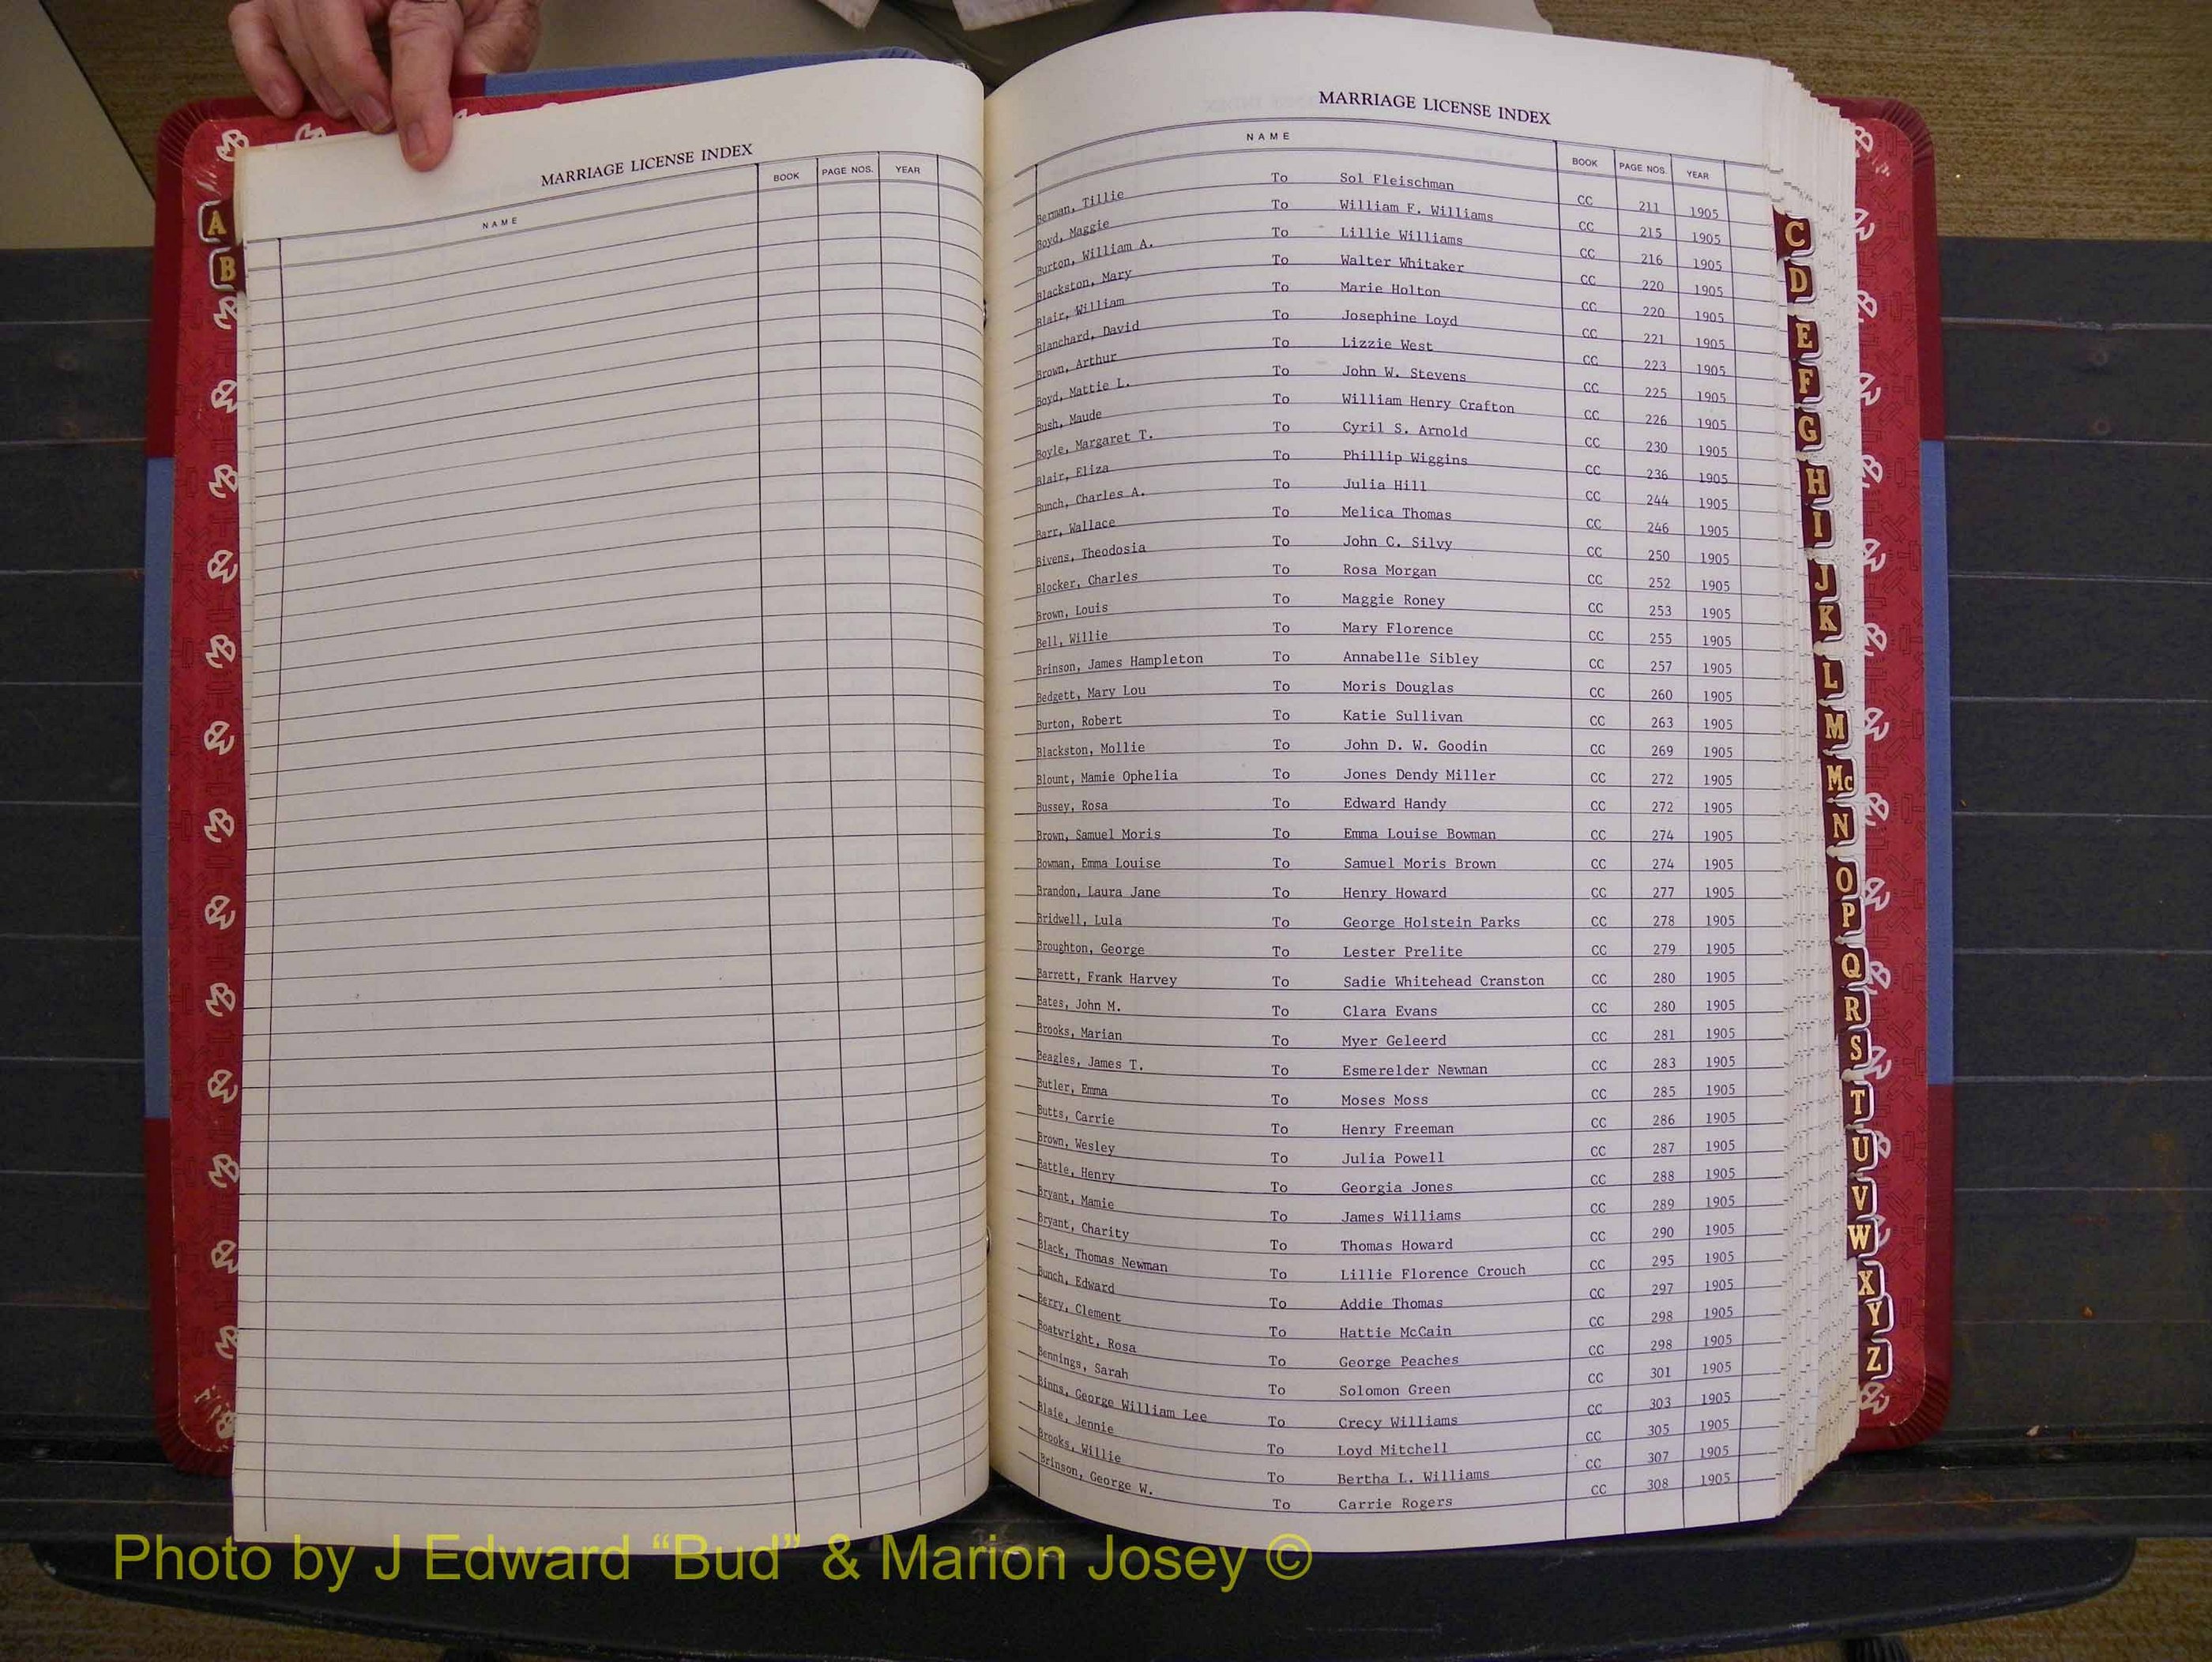 MARRIAGE LICENSE INDEX
NAME BOOK PAGE NOS. YEAR
A
B
MARRIAGE LICENSE INDEX
NAME BOOK PAGE NOS. YEAR
Berman, Tillie To Sol Fleischman CC 211 1905
Boyd, Maggie To William F. Williams CC 215 1905
Burton, William A. To Lillie Williams CC 216 1905
Blackston, Mary To Walter Whitaker CC 220 1905
Blair, William To Marie Holton CC 220 1905
Blanchard, David To Josephine Loyd CC 221 1905
Brown, Arthur To Lizzie West CC 223 1905
Boyd, Mattie L. To John W. Stevens CC 225 1905
Bush, Maude To William Henry Crafton CC 226 1905
Boyle, Margaret T. To Cyril S. Arnold CC 230 1905
Blair, Eliza To Phillip Wiggins CC 236 1905
Bunch, Charles A. To Julia Hill CC 244 1905
Barr, Wallace To Melica Thomas CC 246 1905
Bivens, Theodosia To John C. Silvy CC 250 1905
Blocker, Charles To Rosa Morgan CC 252 1905
Brown, Louis To Maggie Roney CC 253 1905
Bell, Willie To Mary Florence CC 255 1905
Brinson, James Hampleton To Annabelle Sibley CC 257 1905
Bedgett, Mary Lou To Moris Douglas CC 260 1905
Burton, Robert To Katie Sullivan CC 263 1905
Blackston, Mollie To John D. W. Goodin CC 269 1905
Blount, Mamie Ophelia To Jones Dendy Miller CC 272 1905
Bussey, Rosa To Edward Handy CC 272 1905
Brown, Samuel Moris To Emma Louise Bowman CC 274 1905
Bowman, Emma Louise To Samuel Moris Brown CC 274 1905
Brandon, Laura Jane To Henry Howard CC 277 1905
Bridwell, Lula To George Holstein Parks CC 278 1905
Broughton, George To Lester Prelite CC 279 1905
Barrett, Frank Harvey To Sadie Whitehead Cranston CC 280 1905
Bates, John M. To Clara Evans CC 280 1905
Brooks, Marian To Myer Geleerd CC 281 1905
Beagles, James T. To Esmerelder Newman CC 283 1905
Butler, Emma To Moses Moss CC 285 1905
Butts, Carrie To Henry Freeman CC 286 1905
Brown, Wesley To Julia Powell CC 287 1905
Battle, Henry To Georgia Jones CC 288 1905
Bryant, Mamie To James Williams CC 289 1905
Bryant, Charity To Thomas Howard CC 290 1905
Black, Thomas Newman To Lillie Florence Crouch CC 295 1905
Bunch, Edward To Addie Thomas CC 297 1905
Berry, Clement To Hattie McCain CC 298 1905
Boatwright, Rosa To George Peaches CC 298 1905
Bennings, Sarah To Solomon Green CC 301 1905
Binns, George William Lee To Crecy Williams CC 303 1905
Blaie, Jennie To Loyd Mitchell CC 305 1905
Brooks, Willie To Bertha L. Williams CC 307 1905
Brinson, George W. To Carrie Rogers CC 308 1905
C
D
E
F
G
H
I
J
K
L
M
Mc
N
O
P
Q
R
S
T
U
V
W
X
Y
Z
Photo by J Edward “Bud” & Marion Josey ©